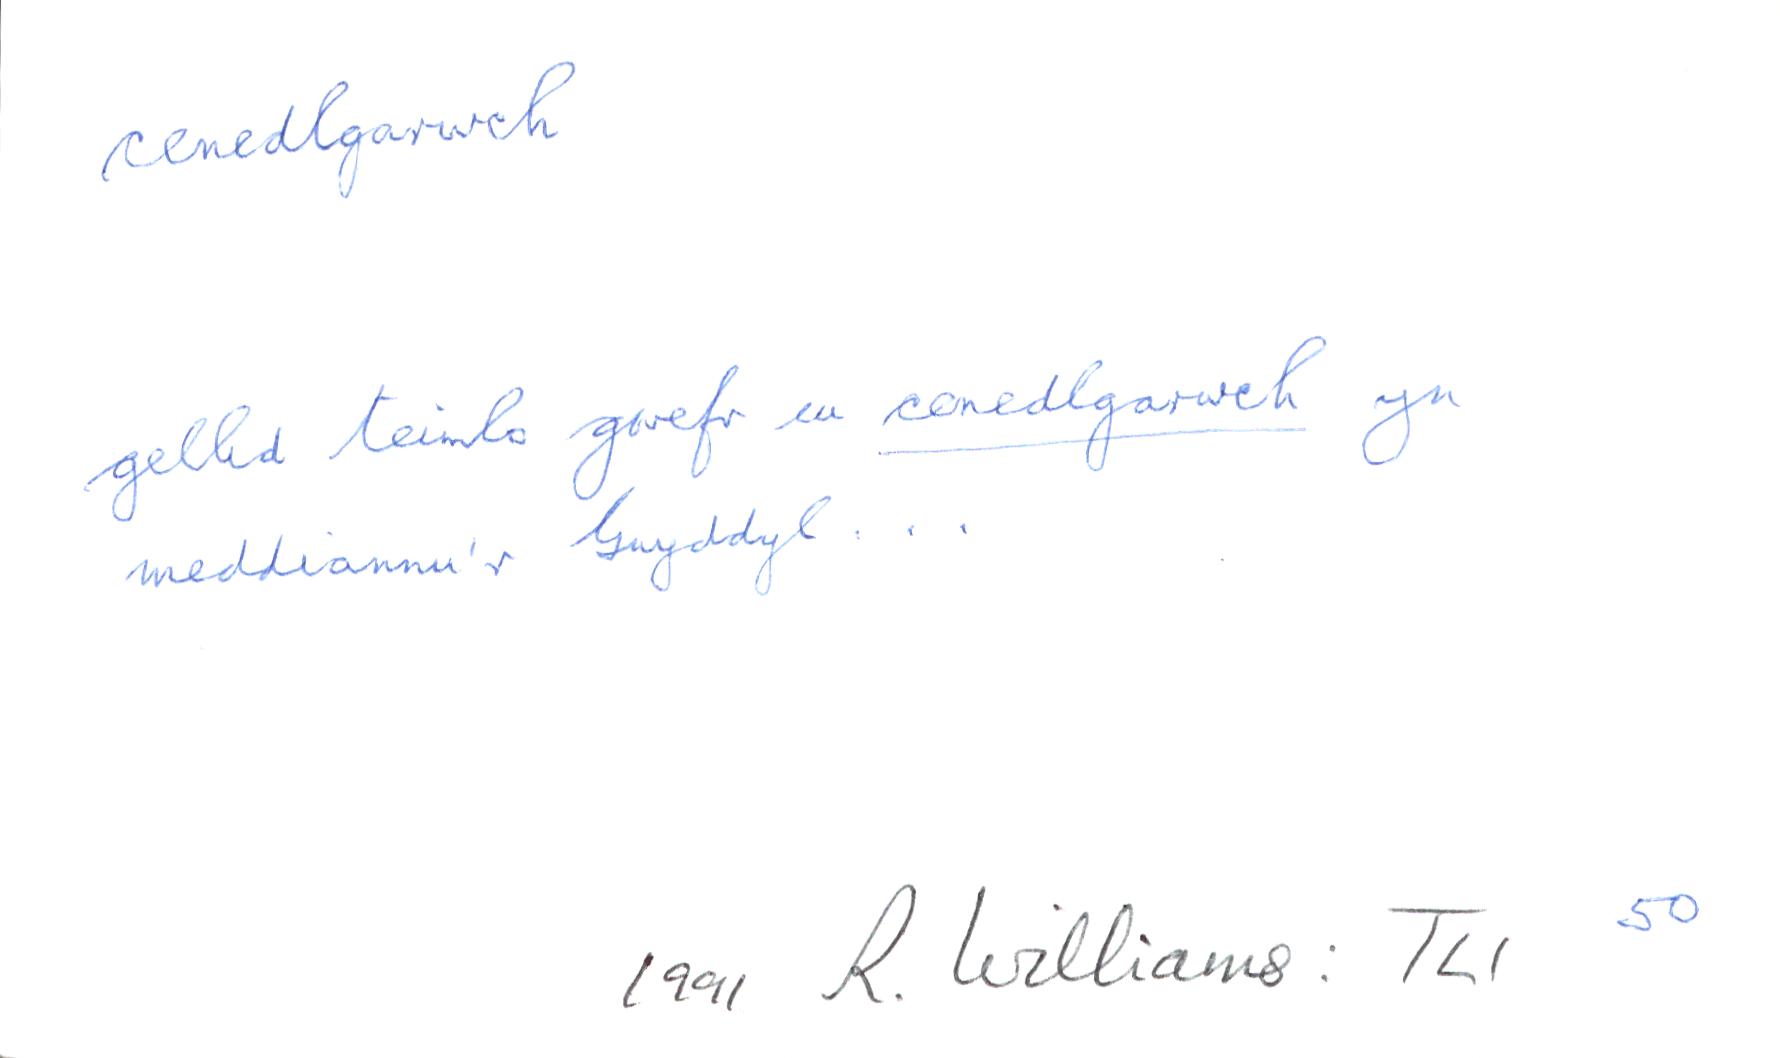 cenedlgarwch
gellid teimlo gwefr eu cenedlgarwch yn
meddiannu'r Gwyddyl . . .
50
1991 R. Williams: TLl